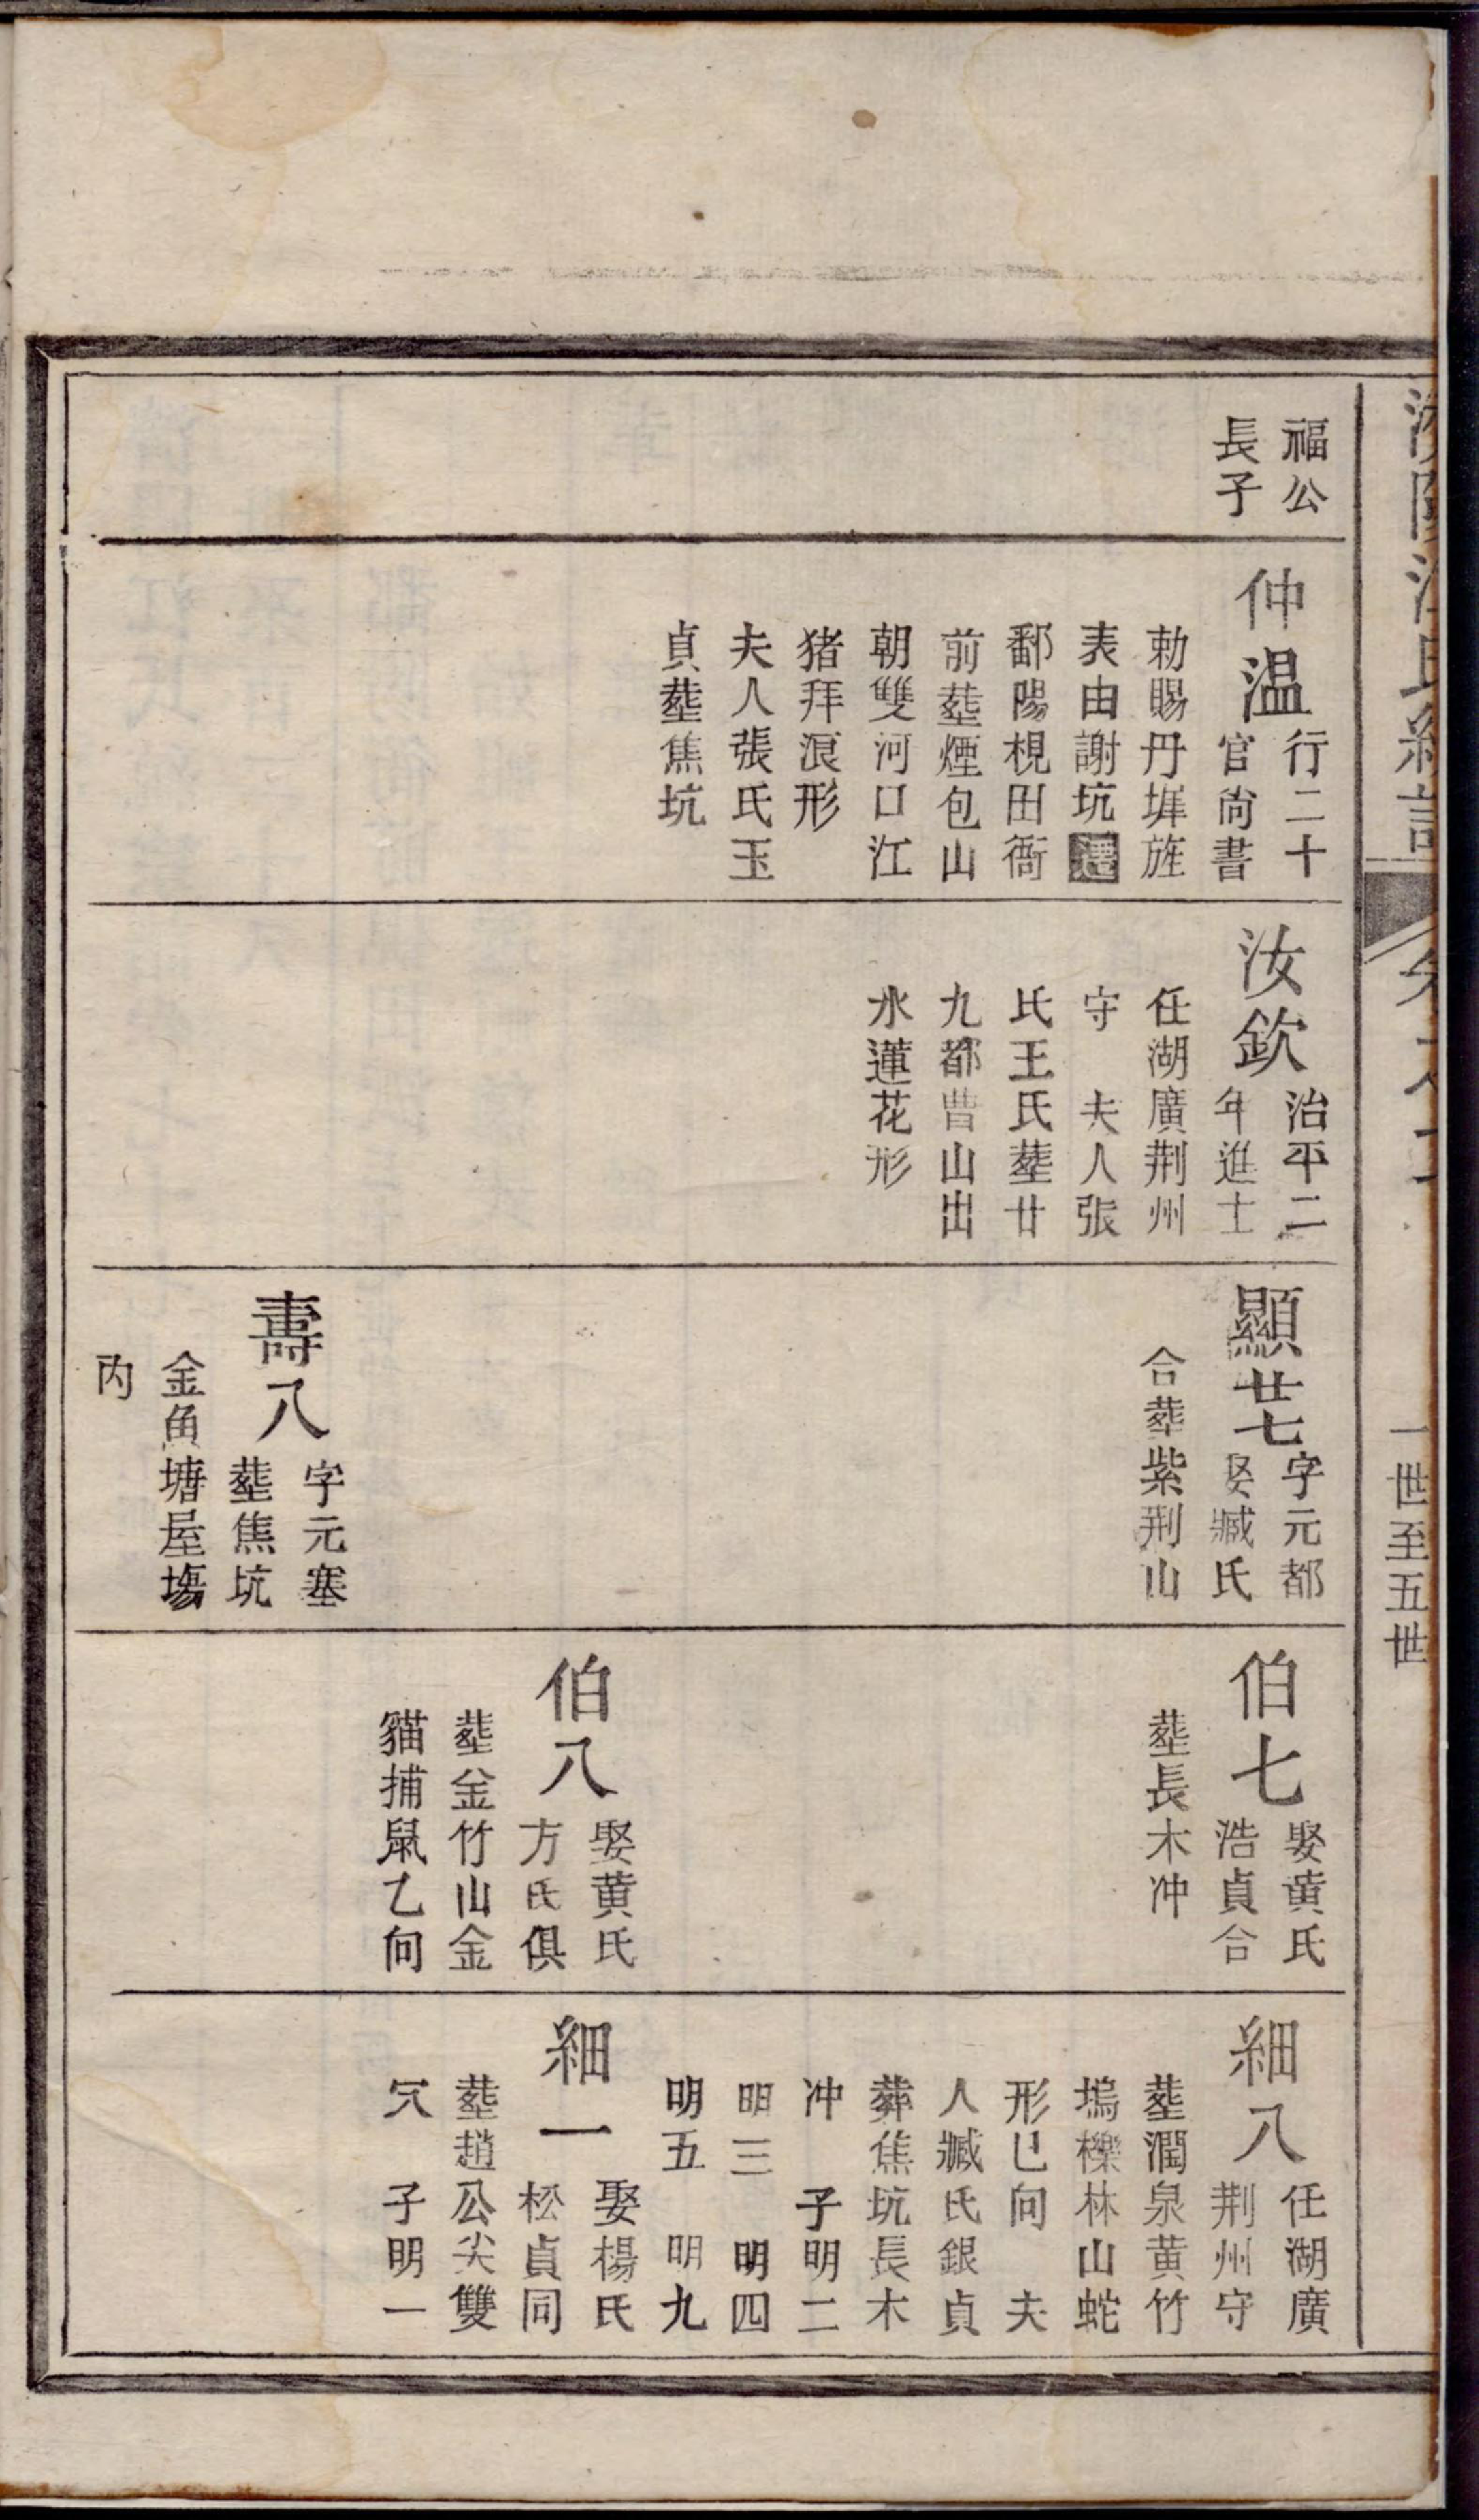 福公
長子
仲温
行二十
官尚書
勅賜丹墀旌
表由謝坑遷
鄱陽梘田衙
前塟煙包山
朝雙河口江
猪拜浪形
夫人張氏玉
貞塟焦坑
汝欽
治平二
年進士
任湖廣荆州
守　夫人張
氏王氏塟廿
九都曹山出
水蓮花形
顯廿七
字元都
娶臧氏
合塟紫荆山
壽八
字元塞
塟焦坑
金魚塘屋塲
内
伯七
娶黄氏
浩貞合
塟長木冲
伯八
娶黄氏
方氏俱
塟金竹山金
貓捕鼠乙向
細八
任湖廣
荆州守
塟潤泉黄竹
塢櫟林山蛇
形巳向　夫
人臧氏銀貞
葬焦坑長木
冲　子明二
明三　明四
明五　明九
細一
娶楊氏
松貞同
塟趙公尖雙
穴　子明一
一世至五世